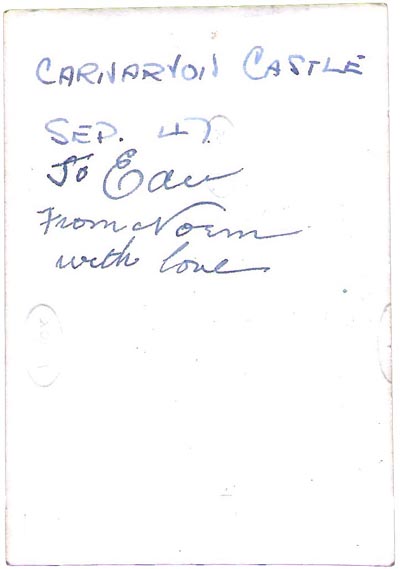 CARNARVON CASTLE
SEP. 47.
To
From Norm
with love